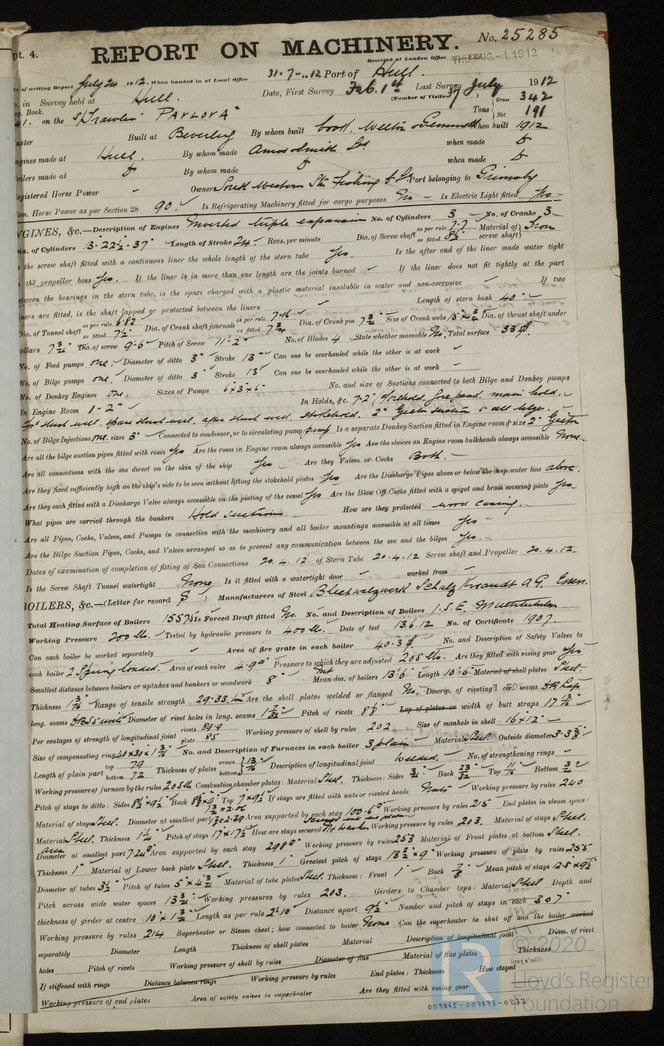 pt. 4.
REPORT ON MACHINERY.
No. 25285
Received at London Office THU. AUG. -1. 1912
of writing Report July 20 1912. When handed in at Local Office 31-7-1912 Port of Hull.
in Survey held at Hull. Date, First Survey Feb. 1st Last Survey July 1912
Book. (Number of Visits
on the S/Trawler "PAVLOVA" Tons Gross 342 Net 191
aster Built at Beverley By whom built Cook, Welton & Gemmell When built 1912
ngines made at Hull. By whom made Amos & Smith Ld when made
oilers made at By whom made when made
egistered Horse Power Owners South Western Stm Fishing Co Ld Port belonging to Grimsby
om. Horse Power as per Section 28 90. Is Refrigerating Machinery fitted for cargo purposes No Is Electric Light fitted Yes
NGINES, &c.—Description of Engines Inverted triple expansion No. of Cylinders 3 No. of Cranks 3
ia. of Cylinders 13-22½-37" Length of Stroke 24 Revs. per minute Dia. of Screw shaft as per rule 7.7 as fitted 8½ Material of screw shaft Iron
the screw shaft fitted with a continuous liner the whole length of the stern tube Yes. Is the after end of the liner made water tight
the propeller boss Yes. If the liner is in more than one length are the joints burned If the liner does not fit tightly at the part
etween the bearings in the stern tube, is the space charged with a plastic material insoluble in water and non-corrosive If two
ners are fitted, is the shaft lapped or protected between the liners Length of stern bush 40"
Dia. of Tunnel shaft as per rule 6.82 as fitted 7½ Dia. of Crank shaft journals as per rule 7.16 as fitted 7¾ Dia. of Crank pin 7¾ Size of Crank webs Dia. of thrust shaft under
ollars 7¾ Dia. of screw 9-6 Pitch of Screw 11-2 No. of Blades 4 State whether moveable No. Total surface 33
No. of Feed pumps one. Diameter of ditto 3" Stroke 13" Can one be overhauled while the other is at work
No. of Bilge pumps one. Diameter of ditto 3" Stroke 13" Can one be overhauled while the other is at work
No. of Donkey Engines one. Sizes of Pumps 6"x3"x6" No. and size of Suctions connected to both Bilge and Donkey pumps
In Engine Room 1-2" In Holds, &c.
No. of Bilge Injections one sizes 3" Connected to condenser, or to circulating pump pump Is a separate Donkey Suction fitted in Engine room & size 2"
Are all the bilge suction pipes fitted with roses Yes Are the roses in Engine room always accessible Yes Are the sluices on Engine room bulkheads always accessible None
Are all connections with the sea direct on the skin of the ship Yes Are they Valves or Cocks Both.
Are they fixed sufficiently high on the ship's side to be seen without lifting the stokehold plates Yes Are the Discharge Pipes above or below the deep water line above.
Are they each fitted with a Discharge Valve always accessible on the plating of the vessel Yes Are the Blow Off Cocks fitted with a spigot and brass covering plate Yes
What pipes are carried through the bunkers Hold suctions How are they protected wood casing.
Are all Pipes, Cocks, Valves, and Pumps in connection with the machinery and all boiler mountings accessible at all times Yes
Are the Bilge Suction Pipes, Cocks, and Valves arranged so as to prevent any communication between the sea and the bilges Yes.
Dates of examination of completion of fitting of Sea Connections 20.4.12 of Stern Tube 20-4-12 Screw shaft and Propeller 20.4.12.
Is the Screw Shaft Tunnel watertight None Is it fitted with a watertight door worked from
BOILERS, &c.—(Letter for record S) Manufacturers of Steel Blechwalzwerk Schulz Knaudt A.G. Essen.
Total Heating Surface of Boilers 1557 Is Forced Draft fitted No. No. and Description of Boilers 1. S.E. Multitubular
Working Pressure 200 lb. Tested by hydraulic pressure to 400 lb. Date of test 13.6.12 No. of Certificate 1907.
Can each boiler be worked separately Area of fire grate in each boiler 40.3 No. and Description of Safety Valves to
each boiler 2 Spring loaded. Area of each valve 4.9 Pressure to which they are adjusted 205 lbs. Are they fitted with easing gear Yes
Smallest distance between boilers or uptakes and bunkers or woodwork 8" Mean dia. of boilers 13'6 Length 10'6 Material of shell plates Steel
Thickness Range of tensile strength 29-33 Are the shell plates welded or flanged No. Descrip. of riveting: cir. seams DR Lap
long. seams Diameter of rivet holes in long. seams Pitch of rivets 8⅛ Lap of plates or width of butt straps
Per centages of strength of longitudinal joint rivets 89.9 plate 85 Working pressure of shell by rules 202 Size of manhole in shell 16"x12"
Size of compensating ring No. and Description of Furnaces in each boiler 3 plain Material Steel Outside diameter
Length of plain part top 79 bottom 72 Thickness of plates crown bottom Description of longitudinal joint welded. No. of strengthening rings
Working pressure of furnace by the rules 205 lb Combustion chamber plates: Material Steel. Thickness: Sides Back Top Bottom
Pitch of stays to ditto: Sides Back Top If stays are fitted with nuts or riveted heads Nuts Working pressure by rules 240
Material of stays Steel. Diameter at smallest part Area supported by each stay Working pressure by rules 215 End plates in steam space:
Material Steel. Thickness Pitch of stays How are stays secured Working pressure by rules 203. Material of stays Steel.
Diameter at smallest part Area supported by each stay 298 Working pressure by rules 253 Material of Front plates at bottom Steel.
Thickness 1" Material of Lower back plate Steel. Thickness 1 Greatest pitch of stays Working pressure of plate by rules 255
Diameter of tubes 3½ Pitch of tubes Material of tube plates Steel Thickness: Front 1" Back ⅞ Mean pitch of stays
Pitch across wide water spaces Working pressures by rules 203. Girders to Chamber tops: Material Steel Depth and
thickness of girder at centre Length as per rule 2'10 Distance apart 9½ Number and pitch of stays in each
Working pressure by rules 214 Superheater or Steam chest; how connected to boiler None Can the superheater be shut off and the boiler worked
separately Diameter Length Thickness of shell plates Material Description of longitudinal joint Diam. of rivet
holes Pitch of rivets Working pressure of shell by rules Diameter of flue Material of flue plates Thickness
If stiffened with rings Distance between rings Working pressure by rules End plates: Thickness How stayed
Working pressure of end plates Area of safety valves to superheater Are they fitted with easing gear
© 2020
Lloyd's Register
Foundation
003865-003873-0232